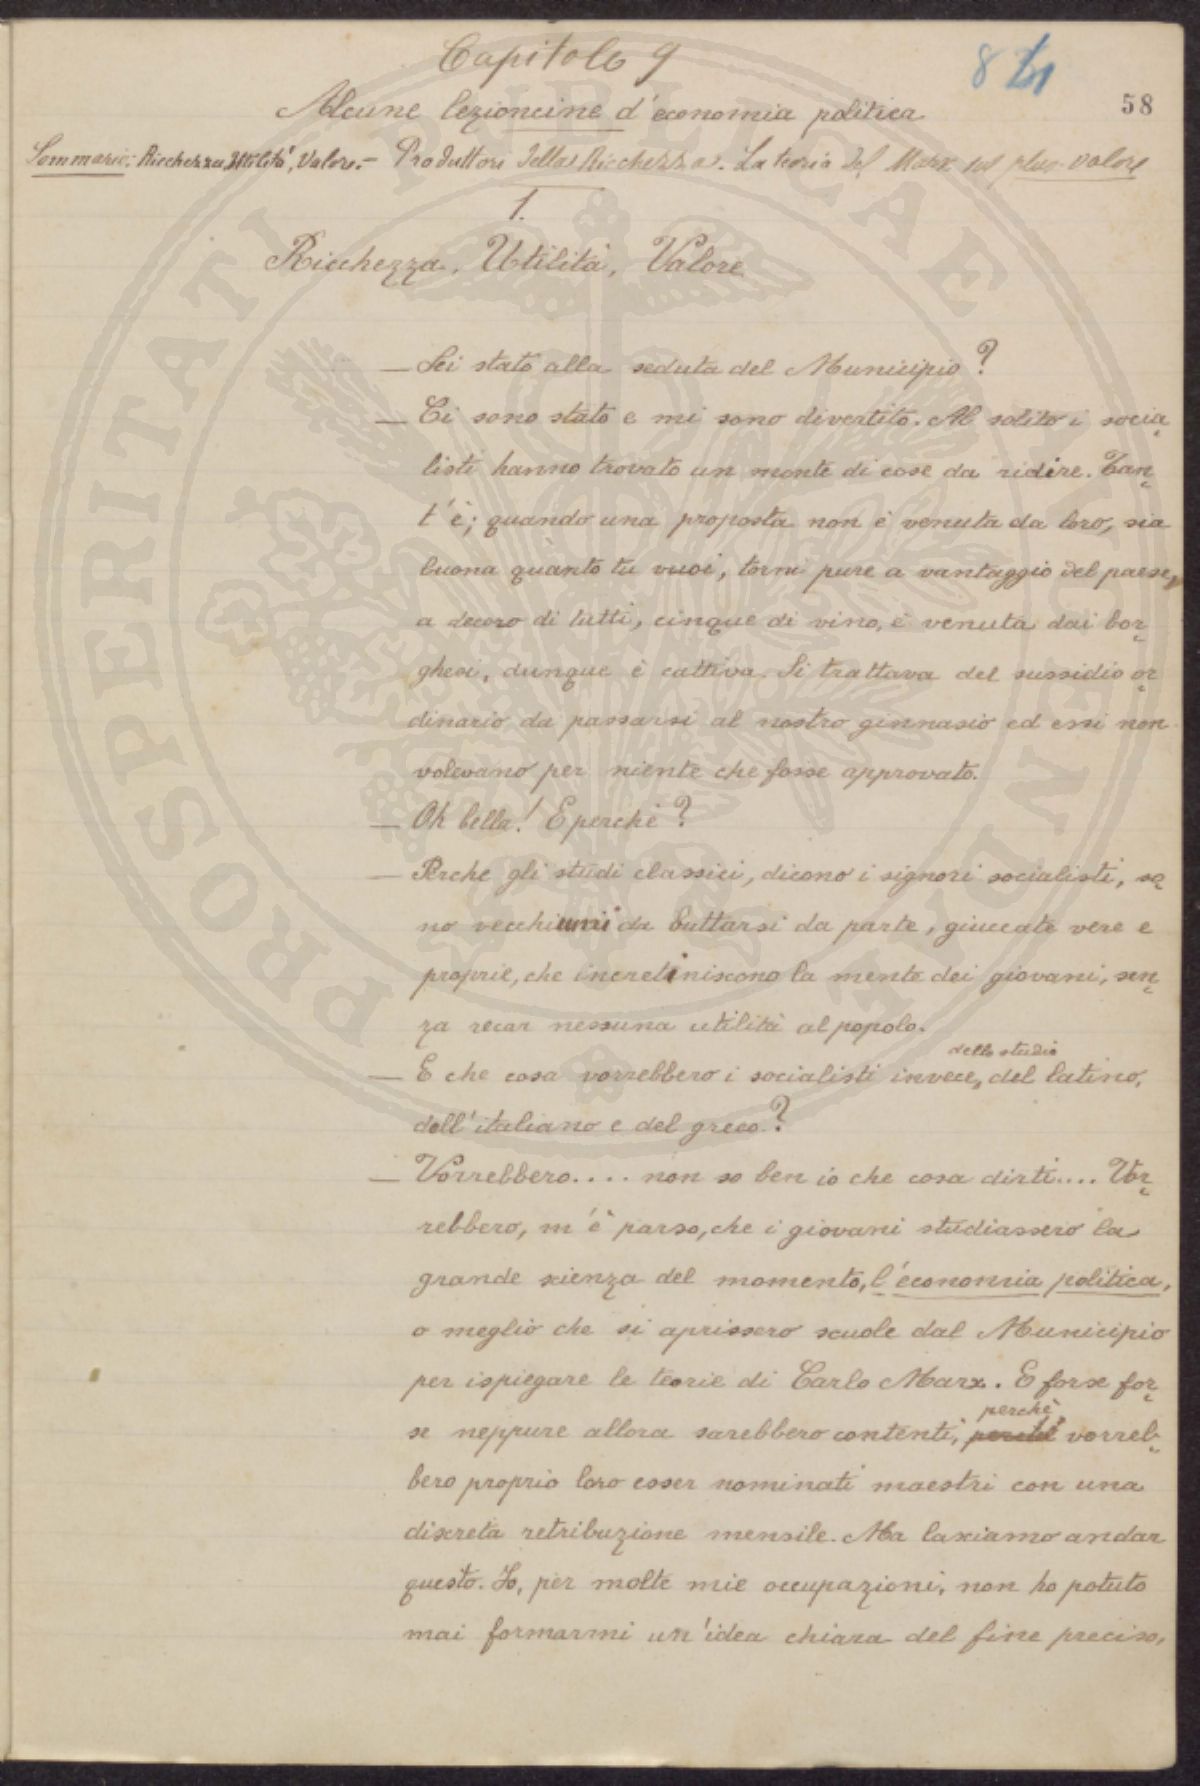 Capitolo 9
Alcune lezioncine d'economia politica
58
Sommario: Ricchezza, Utilità, Valore. – Produttori della Ricchezza. La teoria del Marx sul plus-valore
1.
Ricchezza, Utilità, Valore
— Sei stato alla seduta del Municipio?
— Ci sono stato e mi sono divertito. Al solito i socia-
listi hanno trovato un monte di cose da ridire. Tan-
t'è; quando una proposta non è venuta da loro, sia
buona quanto tu vuoi, torni pure a vantaggio del paese,
a decoro di tutti, cinque di vino, è venuta dai bor-
ghesi, dunque è cattiva. Si trattava del sussidio or-
dinario da passarsi al nostro ginnasio ed essi non
volevano per niente che fosse approvato.
— Oh bella! E perchè?
— Perchè gli studi classici, dicono i signori socialisti, so-
no vecchiumi da buttarsi da parte, giuccate vere e
proprie, che incretiniscono la mente dei giovani, sen-
za recar nessuna utilità al popolo.
dello studio
— E che cosa vorrebbero i socialisti invece, del latino,
dell'italiano e del greco?
— Vorrebbero.... non so ben io che cosa dirti.... Vor-
rebbero, m'è parso, che i giovani studiassero la
grande scienza del momento, l'economia politica,
o meglio che si aprissero scuole dal Municipio
per ispiegare le teorie di Carlo Marx. E forse for-
perchè
se neppure allora sarebbero contenti, perchè vorreb-
bero proprio loro esser nominati maestri con una
discreta retribuzione mensile. Ma lasciamo andar
questo. Io, per molte mie occupazioni, non ho potuto
mai formarmi un'idea chiara del fine preciso,
PROSPERITATI PUBLICAE